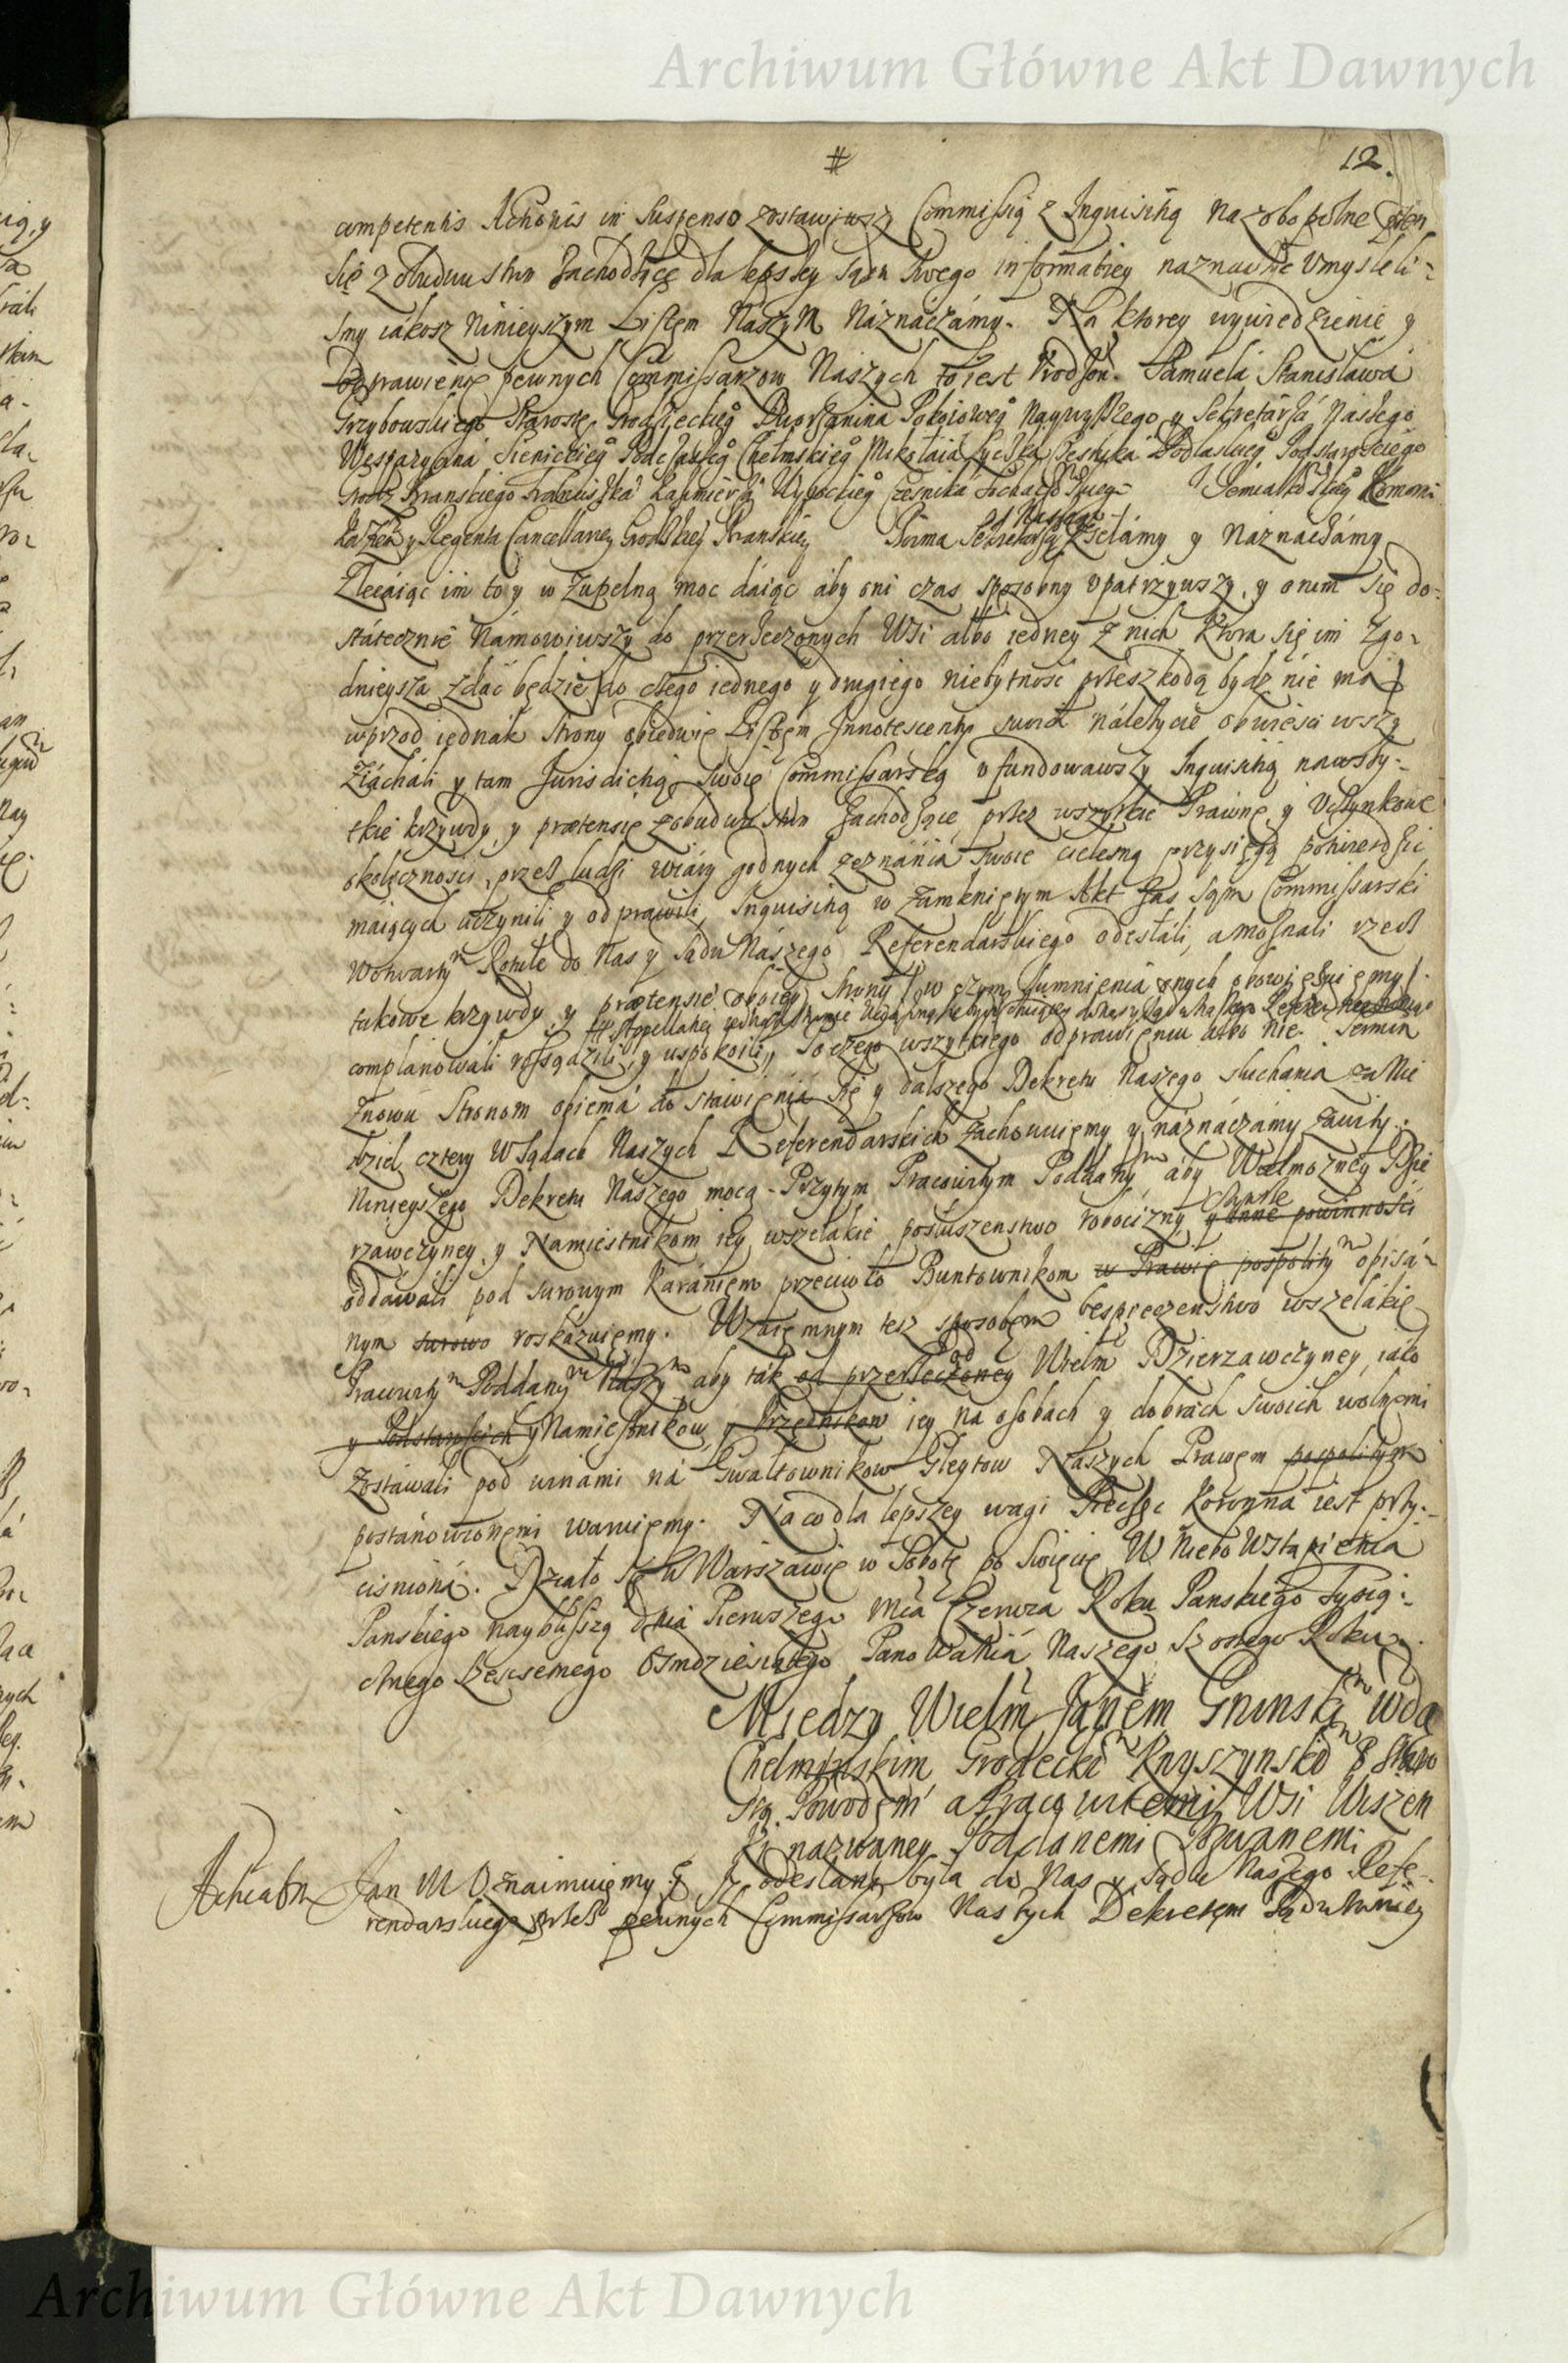 Archiwum Główne Akt Dawnych
#
12.
competentis Actionis in Suspenso zostawiwszy Commissią z Inquisitią na zobopolne
się z obudwu stron zachodzące dla lepszey sądu swego informatiey naznaczyc Vmysleli-
smy iákosz Ninieyszym Listem Nászym Náznáczámy. Na ktorey wywiedzienie y
odprawienie pewnych Commissarzow Naszych to iest Vrodzon. Samuela Stanisława
Grzybowskiego Starostę Grodzieckieg Dworzanina Pokoioweg Naywyszszego y Sekretarza Naszego
Wespazyana Sienickieg Podczaszeg Chełmskieg Mikołaia Łyczka Czesnika Podlaskieg Podstarosciego
Grodz. Branskiego Franciszka Kazimierza Wysockieg Czesnika Sochaczewskieg Komorni
ka Ziem y Regenta Cancellariey Grodzkiey Branskiey Sekretarza Zsełamy y Náznaczámy
Zlecáiąc im to y w zupełną moc dáiąc áby oni czas sposobny vpatrzywszy, y onim się do-
státecznie námowiwszy do przerzeczonych Wsi albo iedney z nich ktora się im zgo-
dnieysza zdać będzie do czego iednego y drugiego niebytność przeszkodą bydz nie ma
wprzod iednák strony obiedwie Listem Innotescentiy swoiey náleżycie obwiesciwszy
Ziácháli y tam Jurisdictią swoię Commissarską vfundowawszy Inquisitią nawszy-
tkie krzywdy, y praetensie zobudwu stron zachodzące, przez wszytkie Prawne y Vczynkowe
okolicznosci, przez ludzi wiáry godnych zeznánia swoie cielesną przysięgą potwierdzic
maiących vczynili y odprawili, Inquisitią w zamknientym Akt zas sądu Commissarski
Wotwartym Rotule do Nas y Sądu Nászego Referendarskiego odesłáli, a możnali rzecz
takowe krzywdy y praetensie oboiey strony / w czym sumnienia onych obowięzuięmy /
complanowali rozsądzili, y uspokoili, Po czego wszytkiego odprawieniu albo nie. Termin
Znowu Stronom obiema do stawienia się y dalszego Dekretu Naszego słuchania za Nie
dziel cztery W Sądach Naszych Referendarskich zachowuięmy y náznáczámy zawity.
Ninieyszego Dekretu Naszego mocą. Przytym Pracowitym Poddanym áby Wielmożney Dzie
rzawczyney, y Namiestnikom iey wszelakie posłuszenstwo robocizny y inne powinnosci
czynsze
oddawáli pod surowym karániem przeciwko Buntownikom w Prawie pospolitym opisá-
nym surowo roskázuięmy. Wzaięmnym tesz sposobem bespieczenstwo wszelákie
Pracowitym Poddanym Naszym aby ták od przerzeczoney Wielm Dzierzawczyney, iáko
y Podstaroscich y Namiestnikow, y Vrzędnikow iey na osobach y dobrách swoich wolnemi
zostáwali pod winami ná Gwałtownikow Gleytow Naszych Prawem pospolitym
postánowionemi waruięmy. Na co dla lepszey wagi Pieczęc Koronna iest przy-
cisniona. Działo się w Warszawie w Sobotę po Swięcie W Niebo Wstąpienia
Panskiego naybliszszą dnia Pierwszego Mca Czerwca Roku Panskiego Tysią-
cznego szescsetnego Osmdziesiątego Panowánia Naszego Szostego Roku.
Miedzy Wielm Janem Gninskim Wdą
Chełminskim Grodeckim Knyszynskim Staro
stą Powodem a Pracowitemi Wsi Wiszen
ki nazwaney Poddanemi Pozwanemi
Jan III Oznaimuięmy. Iż odesłana była do Nas y Sądu Naszego Refe-
rendarskiego przez pewnych Commissarzow Naszych Dekretem
Archiwum Główne Akt Dawnych